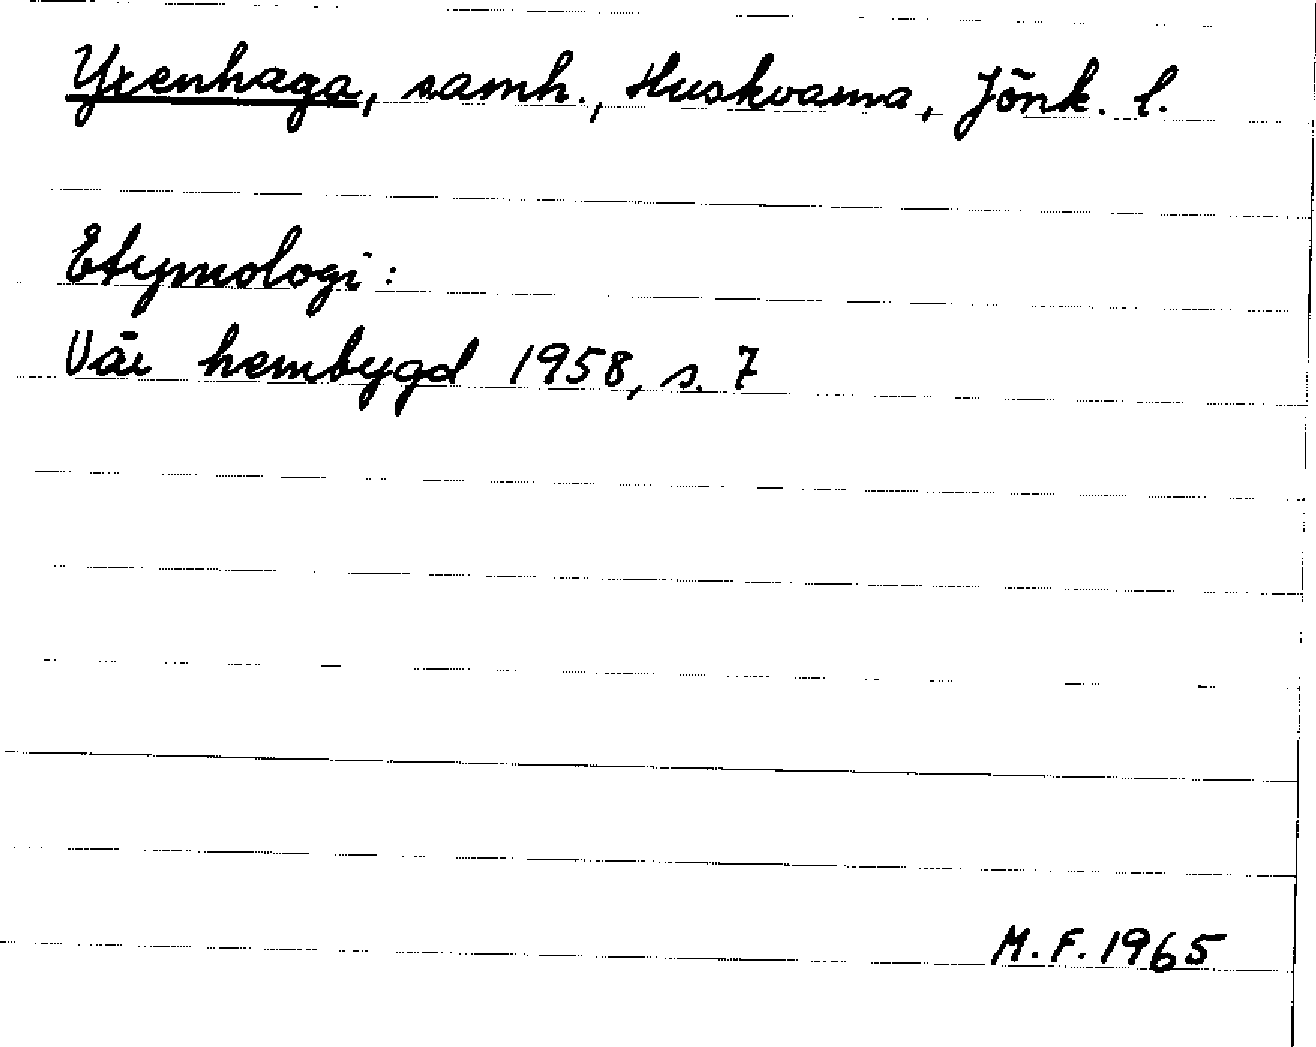 Yxenhaga, samh., Huskvarna, Jönk. l.
Etymologi:
Vår hembygd 1958, s. 7
M.F. 1965